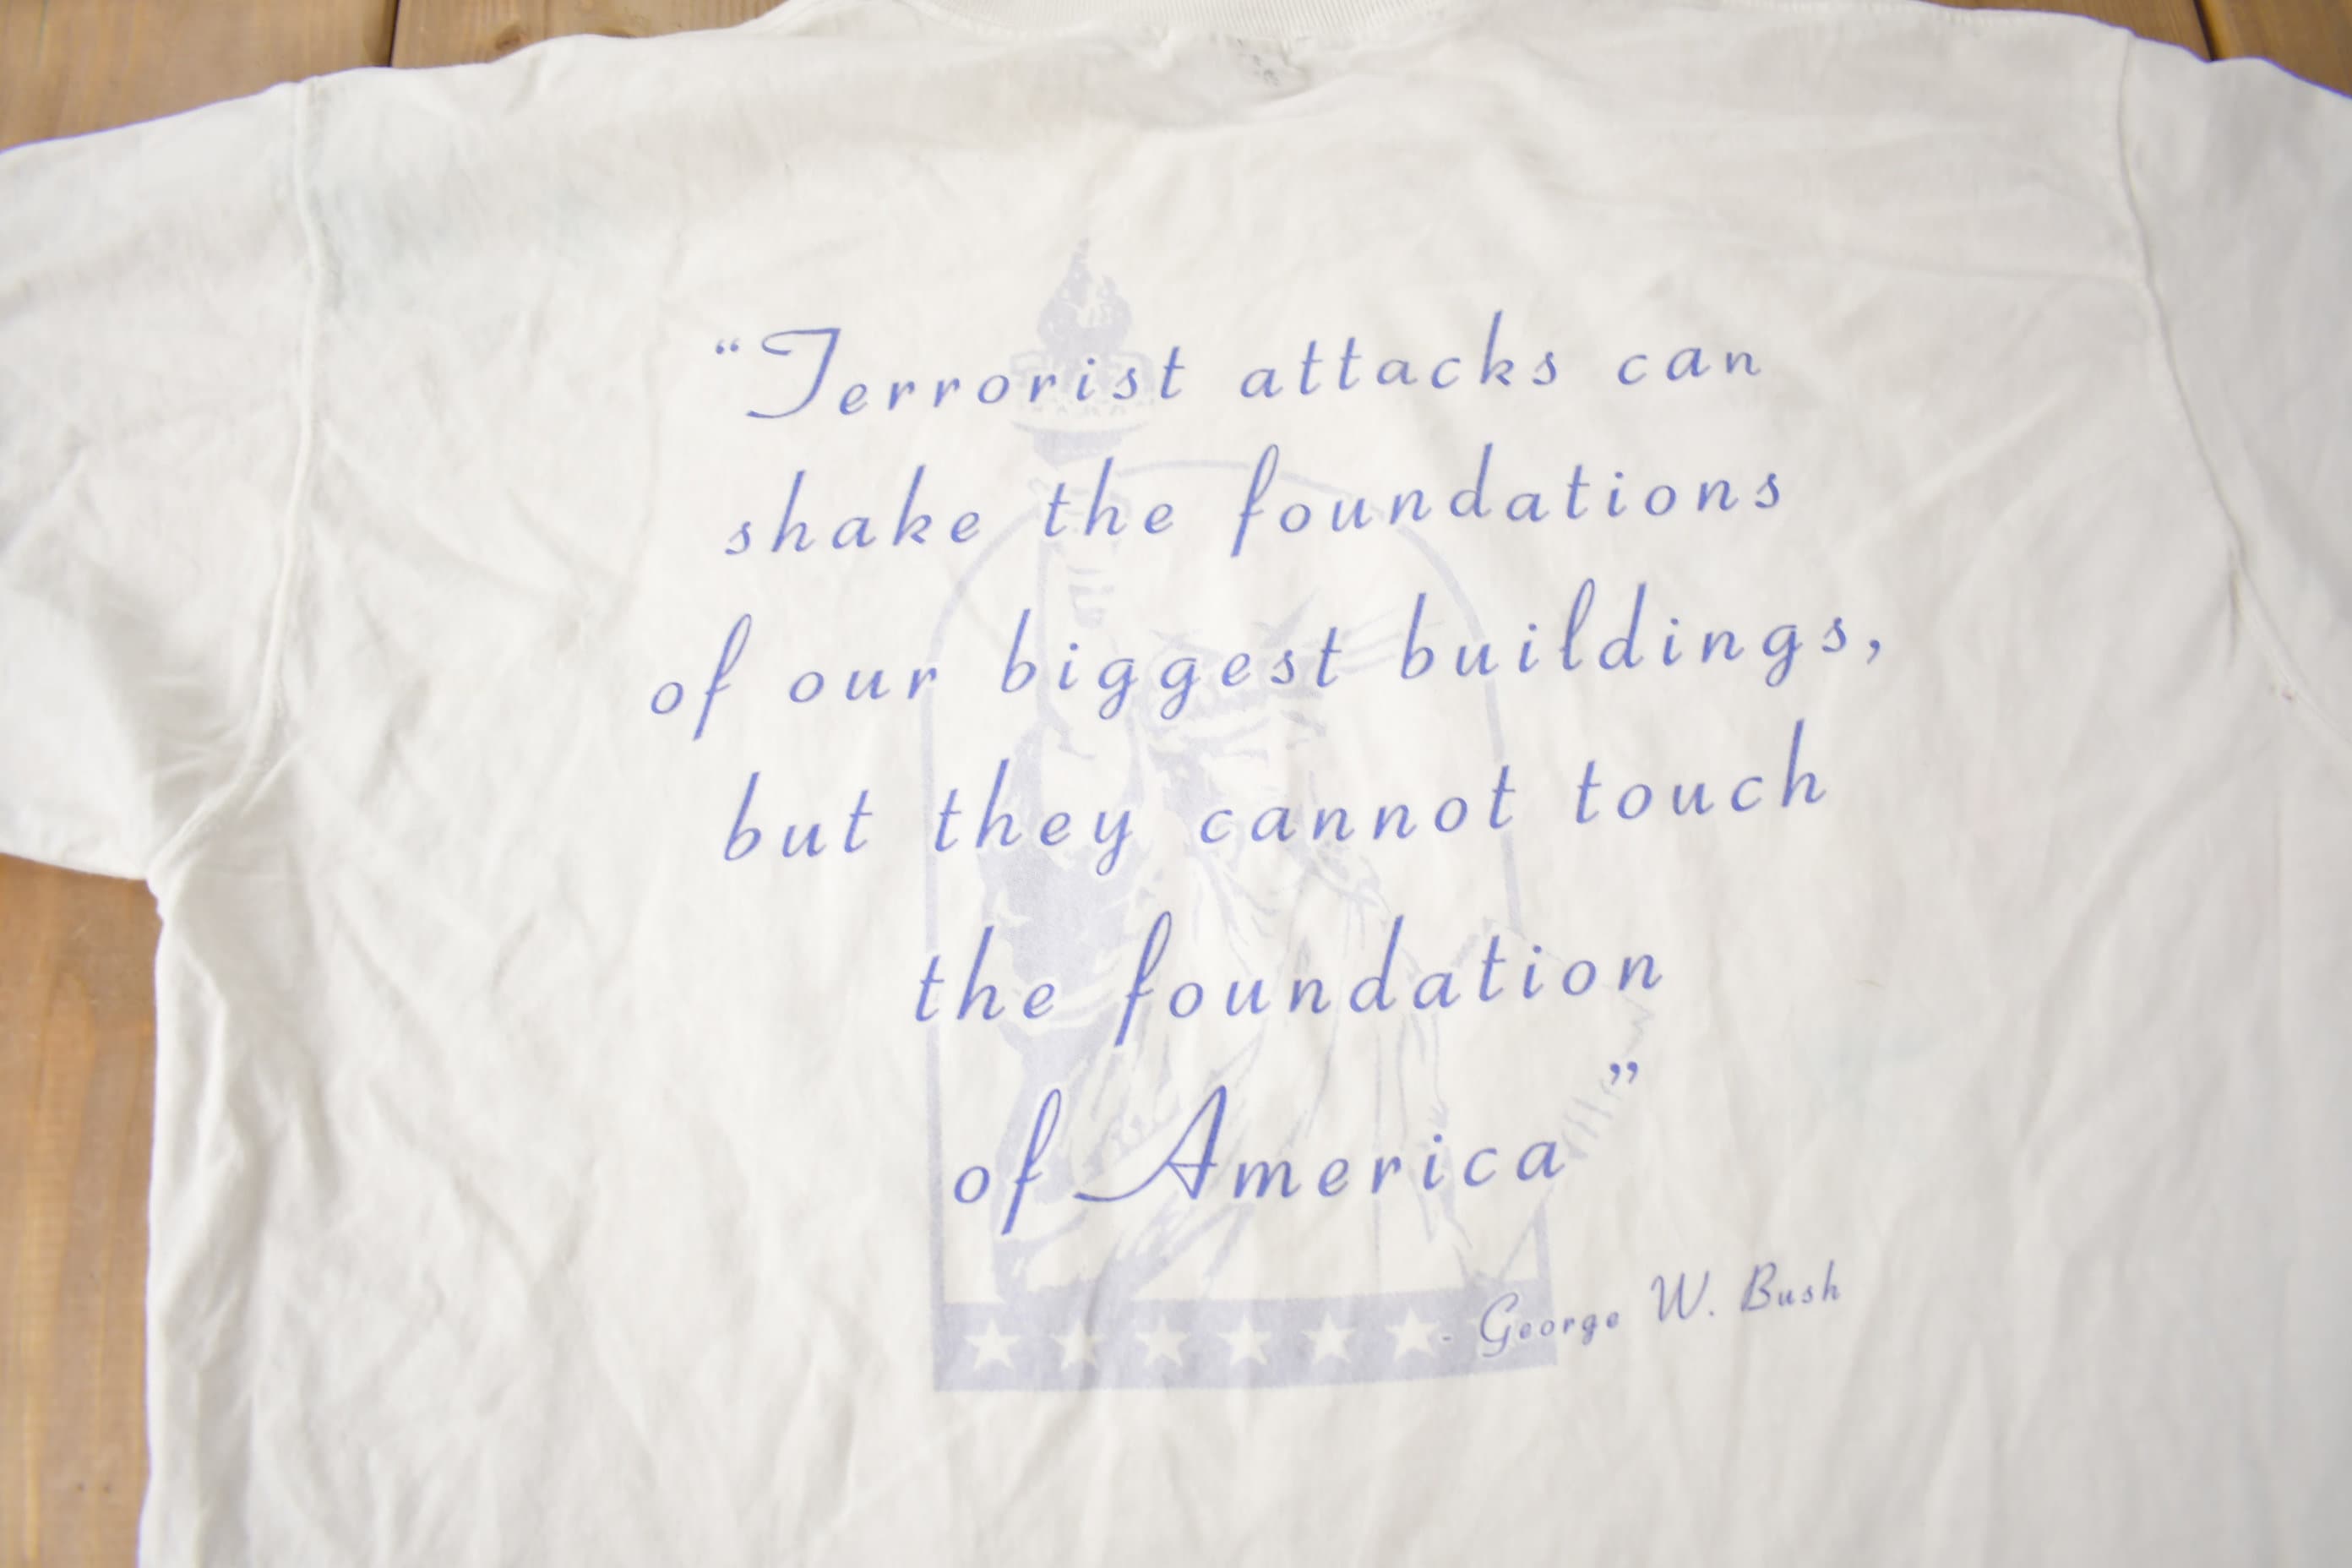 “Terrorist attacks can
shake the foundations
of our biggest buildings,
but they cannot touch
the foundation
of America”
- George W. Bush